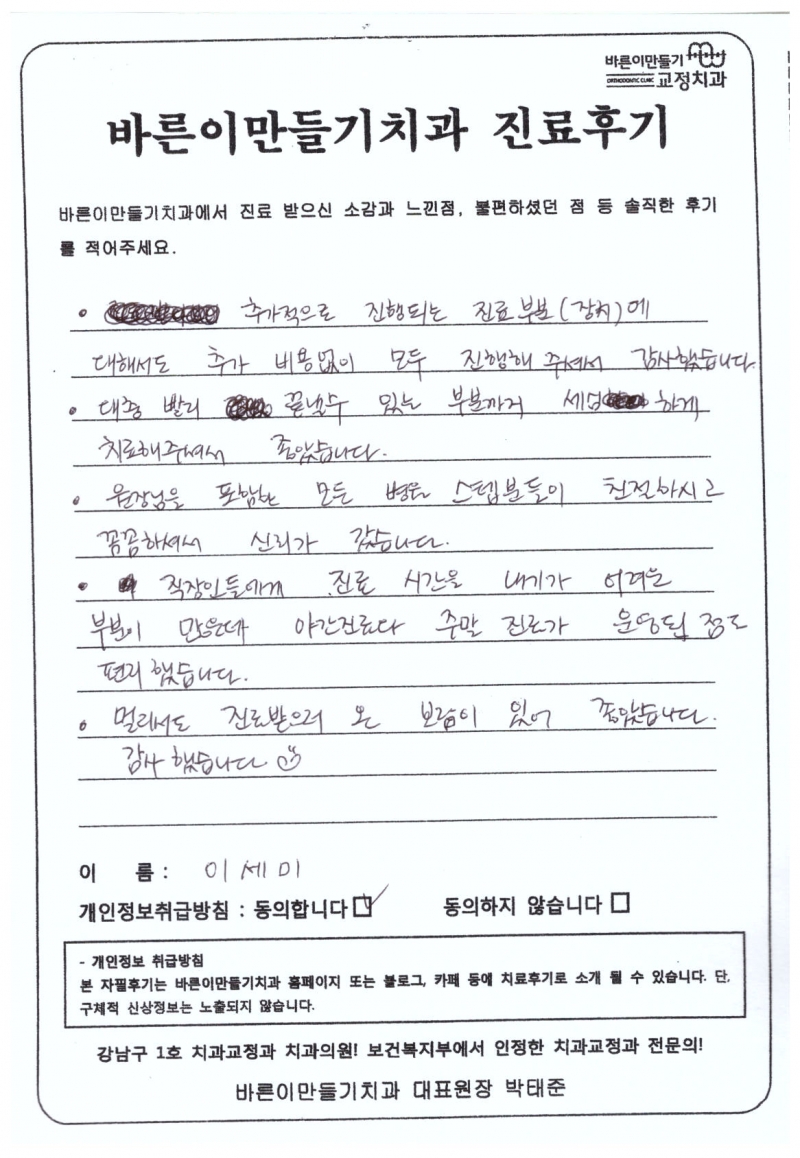 바른이만들기
ORTHODONTIC CLINIC 교정치과
바른이만들기치과 진료후기
바른이만들기치과에서 진료 받으신 소감과 느낀점, 불편하셨던 점 등 솔직한 후기
를 적어주세요.
• 추가적으로 진행되는 진료부분(장치)에
대해서도 추가 비용없이 모두 진행해 주셔서 감사했습니다.
• 대충 빨리 끝낼수 있는 부분까지 세심하게
치료해주셔서 좋았습니다.
• 원장님을 포함한 모든 병원 스텝분들이 친절하시고
꼼꼼하셔서 신뢰가 갔습니다.
• 직장인들에게 진료 시간을 내기가 어려운
부분이 많은데 야간진료나 주말 진료가 운영된 점도
편리했습니다.
• 멀리서도 진료받으러 온 보람이 있어 좋았습니다.
감사했습니다
이 름 : 이세미
개인정보취급방침 : 동의합니다 동의하지 않습니다
- 개인정보 취급방침
본 자필후기는 바른이만들기치과 홈페이지 또는 블로그, 카페 등에 치료후기로 소개 될 수 있습니다. 단,
구체적 신상정보는 노출되지 않습니다.
강남구 1호 치과교정과 치과의원! 보건복지부에서 인정한 치과교정과 전문의!
바른이만들기치과 대표원장 박태준